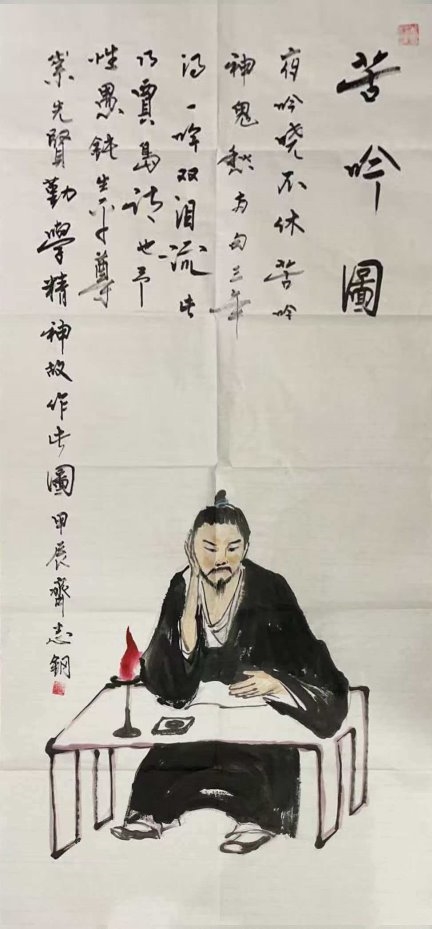 苦吟圖
夜吟晓不休苦吟
神鬼愁两句三年
得一吟双泪流此
乃賈島诗也予
性愚鈍生平尊
崇先賢勤學精神故作此圖甲辰齊志钢